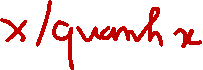 x/quanh x